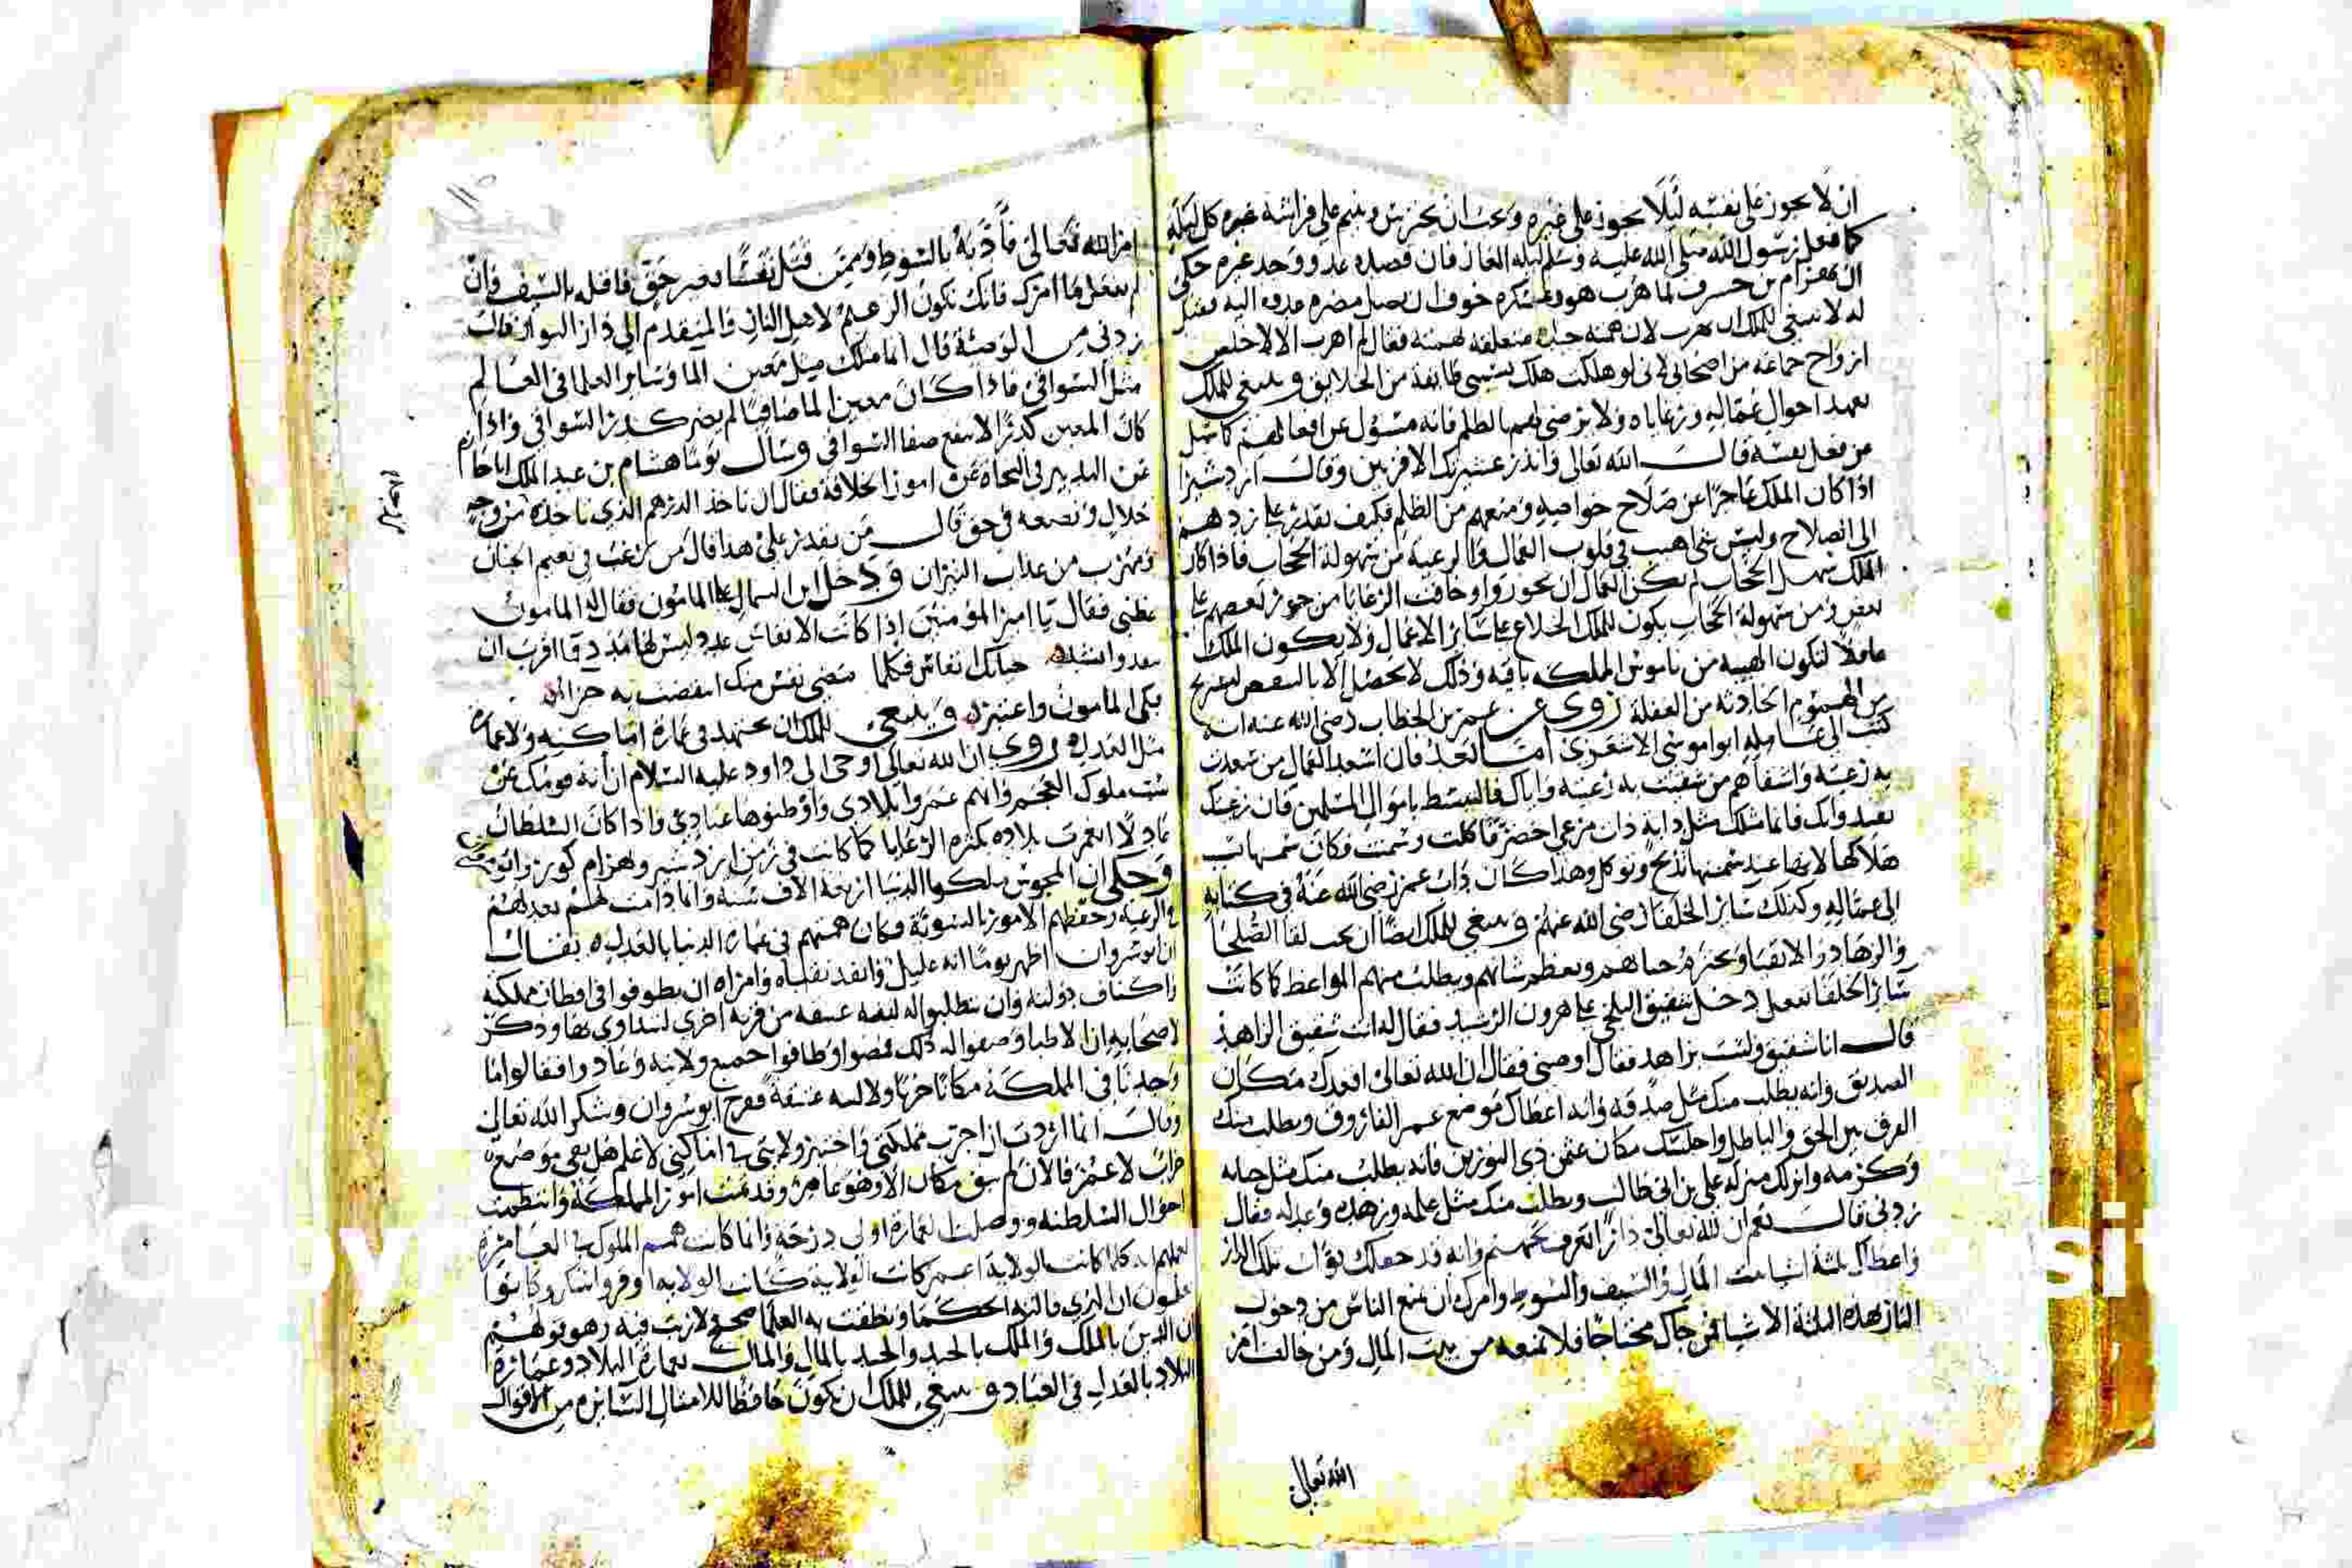 ان لا يجوز على نفسه ليلا يجوز على غيره ويجب ان يحترس وينيم على فراشه غيره كل ليلة
كما فعل رسول الله صلى الله عليه وسلم ليلة الغار فان قصده عدو وجد غيره حكى
ان بهرام بن لما هرب هو وعسكره خوفا ان يصل مضره عدوه اليه فقيل
له لا ينبغي للملك ان يهرب لان همته فقال لم اهرب الا لاخلص
ارواح جماعة من اصحابي لاني لو هلكت هلك بسببي طايفة من الخلايق وينبغي للملك
تعهد احوال عماله ورعاياه ولا يرضى لهم بالظلم فانه مسؤل عن افعالهم كما يسل
عن فعل نفسه قال الله تعالى وانذر عشيرتك الاقربين وقال اردشير
اذا كان الملك عاجزا عن صلاح خواصه ومنعهم من الظلم فكيف يقدر على ردهم
الى الصلاح وليس شي اهيب في قلوب العمال والرعية من سهولة الحجاب فاذا كان
الملك سهل الحجاب لم يمكن العمال ان يجوروا وخافت الرعايا من جور بعضهم على
بعض ومن سهولة الحجاب يكون للملك اطلاع على ساير الاعمال ولا يكون الملك
غافلا لتكون الهيبة من ناموس المملكة باقية وذلك لا يحصل الا
من الهموم الحادثة من الغفلة روي عن عمر بن الخطاب رضي الله عنه انه
كتب الى عامله ابو اموسى الاشعري اما بعد فان اسعد العمال من سعدت
به رعيته واشقاهم من شقيت به رعيته واياك والتبسط باموال المسلمين فان رعيتك
تقتد وابك فانما مثلك مثل دابة رات مرعى اخضر فاكلت وسمنت فكان سمنها سبب
هلاكها لانها عند سمنها تذبح وتوكل وهذا كان داب عمر رضي الله عنه في كتابه
الى عماله وكذلك ساير الخلفا رضي الله عنهم وينبغي للملك ايضا ان يحب لقا الصلحا
والزهاد والاتقيا ويعظم شانهم ويطلب منهم المواعظ كما كانت
ساير الخلفا تفعل دخل شقيق البلخي على هرون الرشيد فقال له انت شقيق الزاهد
قال انا شقيق ولست بزاهد فقال اوصني فقال ان الله تعالى اقعدك مكان
الصديق وانه يطلب منك مثل صدقه وانه اعطاك موضع عمر الفاروق ويطلب منك
الفرق بين الحق والباطل واجلسك مكان عثمن ذي النورين فانه يطلب منك مثل حيايه
وكرمه وانزلك منزلة علي بن ابي طالب ويطلب منك مثل علمه وزهده وعدله فقال
زدني قال نعم ان لله تعالى دارا تعرف بجهنم وانه قد جعلك بواب تلك الدار
واعطاك ثلثة اشيا بيت المال والسيف والسوط وامرك ان تمنع الناس من دخول
النار بهذه الثلثة الاشيا فمن جاك محتاجا فلا تمنعه من بيت المال ومن خالف امر
الله تعالى
امر الله تعالى فأدبه بالسوط ومن قتل نفسا بغير حق فاقتله بالسيف وان
لم تفعل ما امرك فانك تكون الزعيم لاهل النار والمتقدم الى دار البوار قال
زدني من الوصية قال انما مثلك مثل معين الما وساير العلما في العالم
مثل السواقي فاذا كان معين الما صافيا لم يضر كدر السواقي واذا
كان المعين كدرا لا ينفع صفا السواقي وسال يوما هشام بن عبد الملك ابا حازم
عن التدبير في النجاة عن امور الخلافة فقال ان تاخذ الدرهم الذي تاخذه من وجه
حلال وتضعه في حق قال من يقدر على هذا قال من يرغب في نعيم الجنان
ويهرب من عذاب النيران ودخل ابن السمال على المامون فقال له المامون
عظني فقال يا امير المؤمنين اذا كانت الانفاس عدد ليس لها مدد فما اقرب ان
تنفد وانشد حياتك انفاس فكلما مضى نفس منك انقصت به جزا
فبكى المامون واعتبر وينبغي للملك ان يجتهد في عمارة اماكنه ولا عمارة
مثل العدل روي ان الله تعالى اوحى الى داود عليه السلام ان أنه قومك عن
سب ملوك العجم فانهم عمروا بلادي واوطنوها عبادي واذا كان السلطان
عادلا انعمرت بلاده بكثرة الرعايا كما كانت في زمن اردشير وبهرام
وحكى ان المجوس ملكوا الدنيا اربعة الاف سنة وانما دامت لهم بعدلهم
في الرعية وحفظهم الامور بالسوية وكان همتهم في عمارة الدنيا بالعدل يقال
ان نوشروان اظهر يوما انه عليل وانفد ثقاته وامناه ان يطوفوا في اقطار مملكته
واكناف دولته وان يطلبوا له لبنة عتيقة من قرية اخرى ليتداوى بها وذكر
لاصحابه ان الاطبا وصفوا له ذلك فمضوا وطافوا جميع ولايته وعادوا فقالوا ما
وجدنا في المملكة مكانا خرابا ولا لبنة عتيقة ففرح انوشروان وشكر الله تعالى
وقال انما اردت ان اجرب مملكتي واختبر ولايتي لاعلم هل بقي موضع
خراب لاعمره فالان لم يبق مكان الا وهو عامر وقد تمت امور المملكة وانتظمت
احوال السلطنة ووصلت العمارة اولى درجة وانما كانت همم الملوك في العمارة
لعلمهم انه كلما كانت الولاية اعمر كانت الولاية اوفر واشكر وكانوا
يعلمون ان الذي قالته الحكما ونطقت به العلما صحيح لا ريب فيه وهو قولهم
ان الدين بالملك والملك بالجند والجند بالمال والمال بعمارة البلاد وعمارة
البلاد بالعدل في العباد وينبغي للملك ان يكون حافظا للامثال السايرة من الاقوال